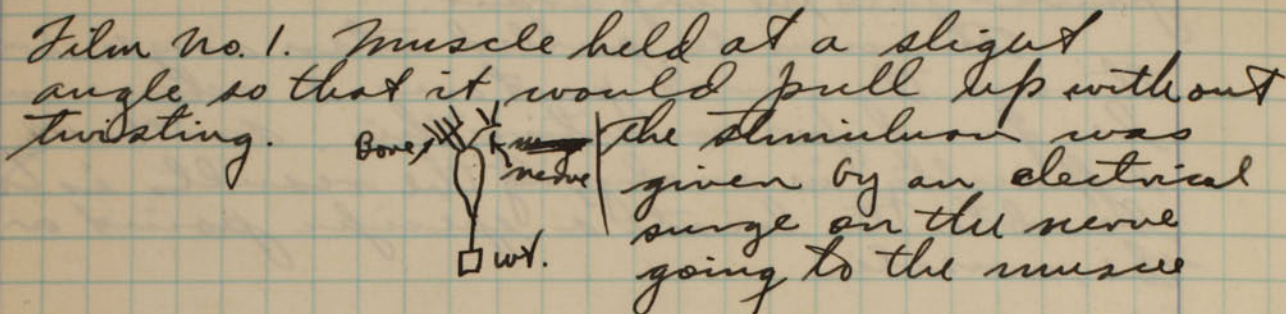 Film no. 1. Muscle held at a slight
angle so that it would pull up without
twisting.
Bone
nerve
wt.
The stimulus was
given by an electrical
surge on the nerve
going to the muscle